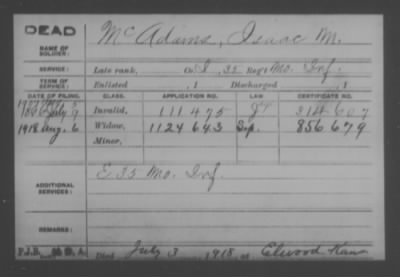 DEAD
NAME OF SOLDIER: McAdams, Isaac M.
SERVICE: Late rank, Co. I, 35 Reg't Mo. Inf.
TERM OF SERVICE: Enlisted , 1 Discharged , 1
DATE OF FILING. CLASS. APPLICATION NO. LAW CERTIFICATE NO.
July 9 Invalid, 111475 314607
1918 Aug. 6 Widow, 1124643 Sep. 856679
Minor,
ADDITIONAL SERVICES: E 35 Mo. Inf.
REMARKS:
Died July 3, 1918, at Elwood Kans